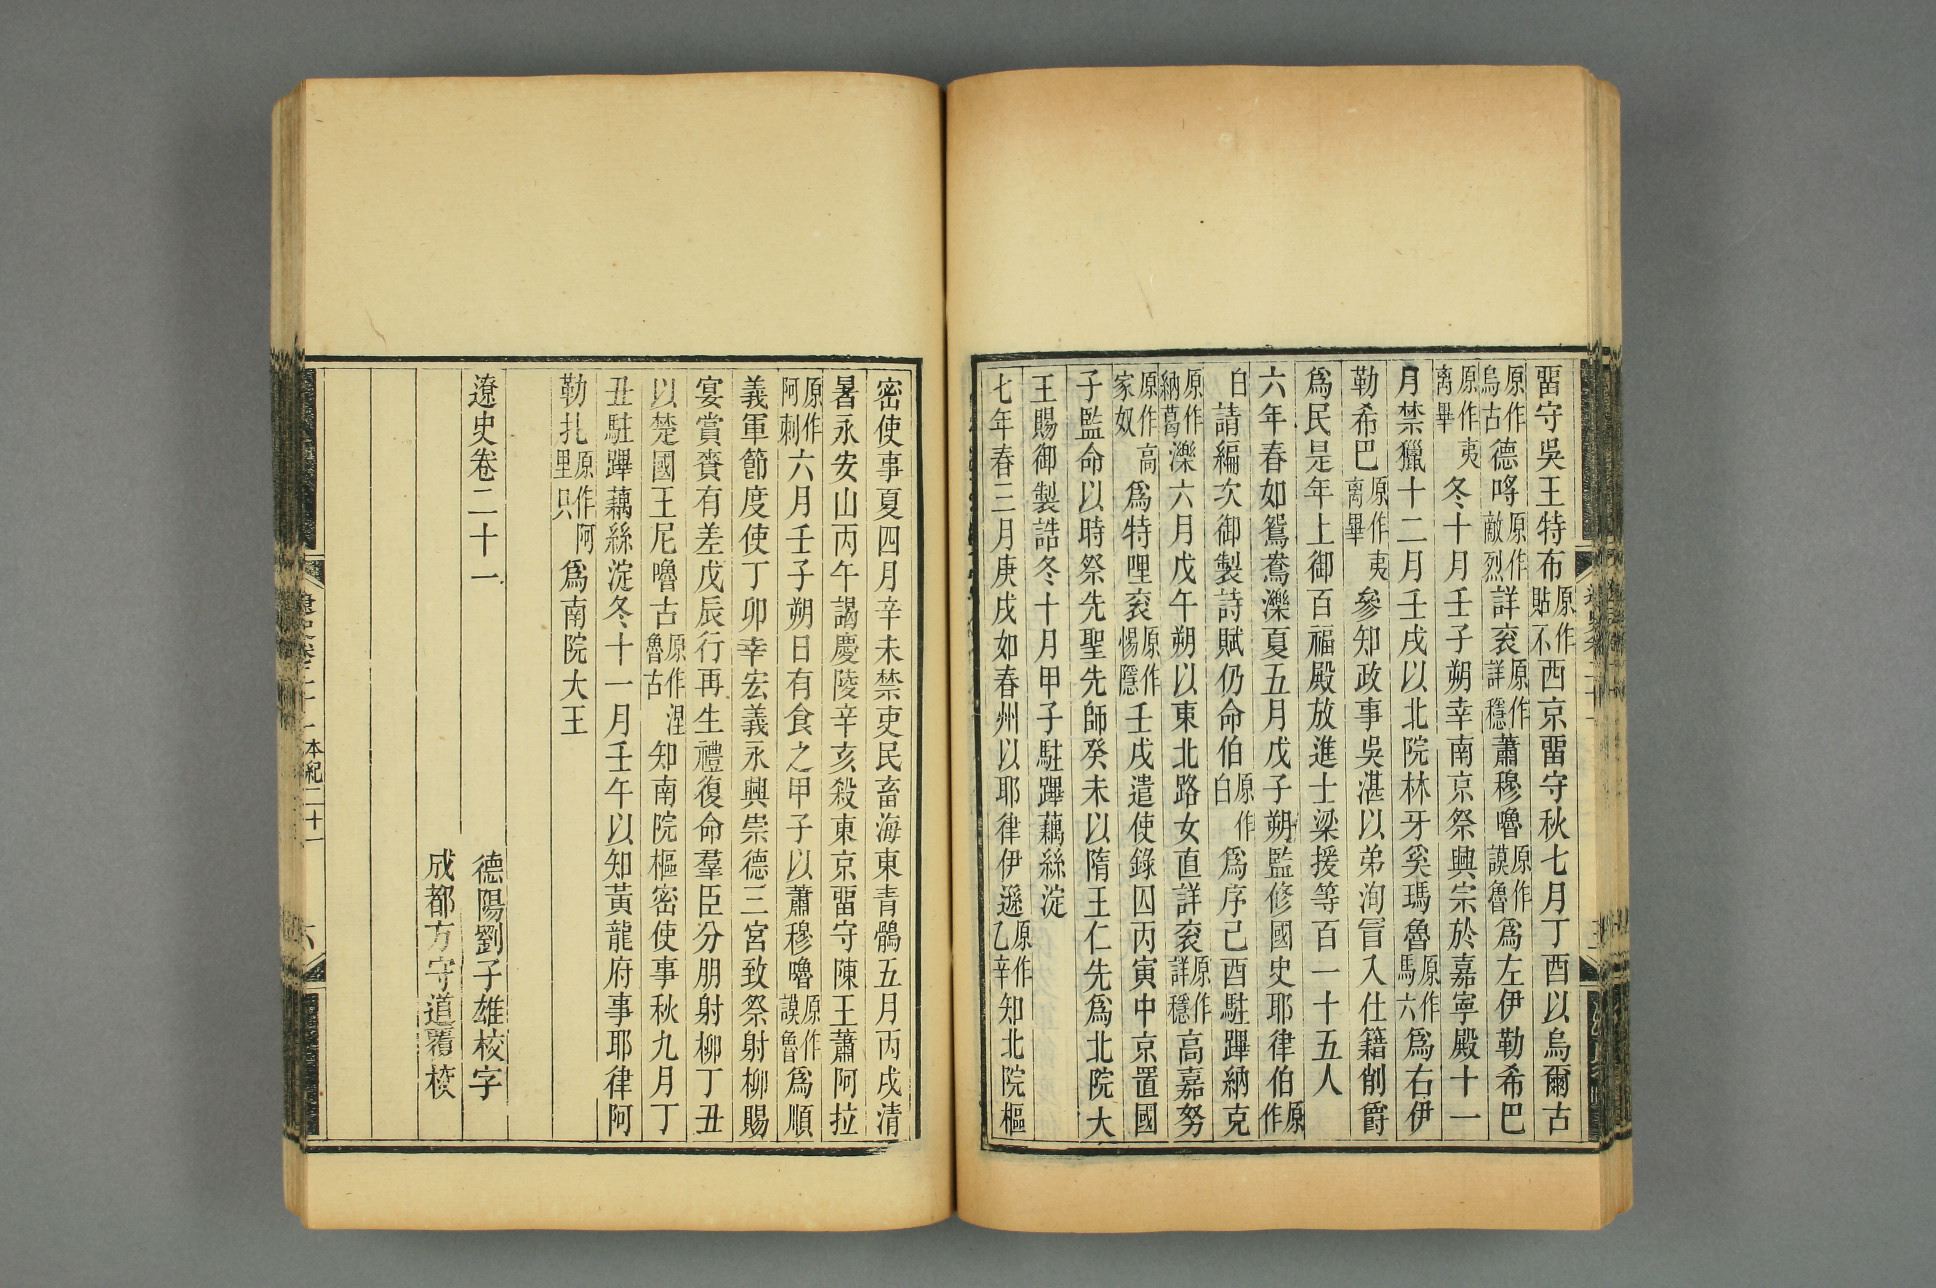 畱守吳王特布原作貼不西京畱守秋七月丁酉以烏爾古
原作烏古德哷原作敵烈詳衮原作詳穩蕭穆嚕原作謨魯爲左伊勒希巴
原作夷离畢冬十月壬子朔幸南京祭興宗於嘉寧殿十一
月禁獵十二月壬戌以北院林牙奚瑪魯原作馬六爲右伊
勒希巴原作夷离畢參知政事吳湛以弟洵冒入仕籍削爵
爲民是年上御百福殿放進士梁援等百一十五人
六年春如鴛鴦濼夏五月戊子朔監修國史耶律伯原作
白請編次御製詩賦仍命伯原作白爲序己酉駐蹕納克
原作納葛濼六月戊午朔以東北路女直詳衮原作詳穩高嘉努
原作高家奴爲特哩衮原作惕隱壬戌遣使錄囚丙寅中京置國
子監命以時祭先聖先師癸未以隋王仁先爲北院大
王賜御製誥冬十月甲子駐蹕藕絲淀
七年春三月庚戌如春州以耶律伊遜原作乙辛知北院樞
密使事夏四月辛未禁吏民畜海東青鶻五月丙戌清
暑永安山丙午謁慶陵辛亥殺東京畱守陳王蕭阿拉
原作阿剌六月壬子朔日有食之甲子以蕭穆嚕原作謨魯爲順
義軍節度使丁卯幸宏義永興崇德三宮致祭射柳賜
宴賞賚有差戊辰行再生禮復命羣臣分朋射柳丁丑
以楚國王尼嚕古原作涅魯古知南院樞密使事秋九月丁
丑駐蹕藕絲淀冬十一月壬午以知黃龍府事耶律阿
勒扎原作阿里只爲南院大王
遼史卷二十一
德陽劉子雄校字
成都方守道覆校
本紀二十一
六